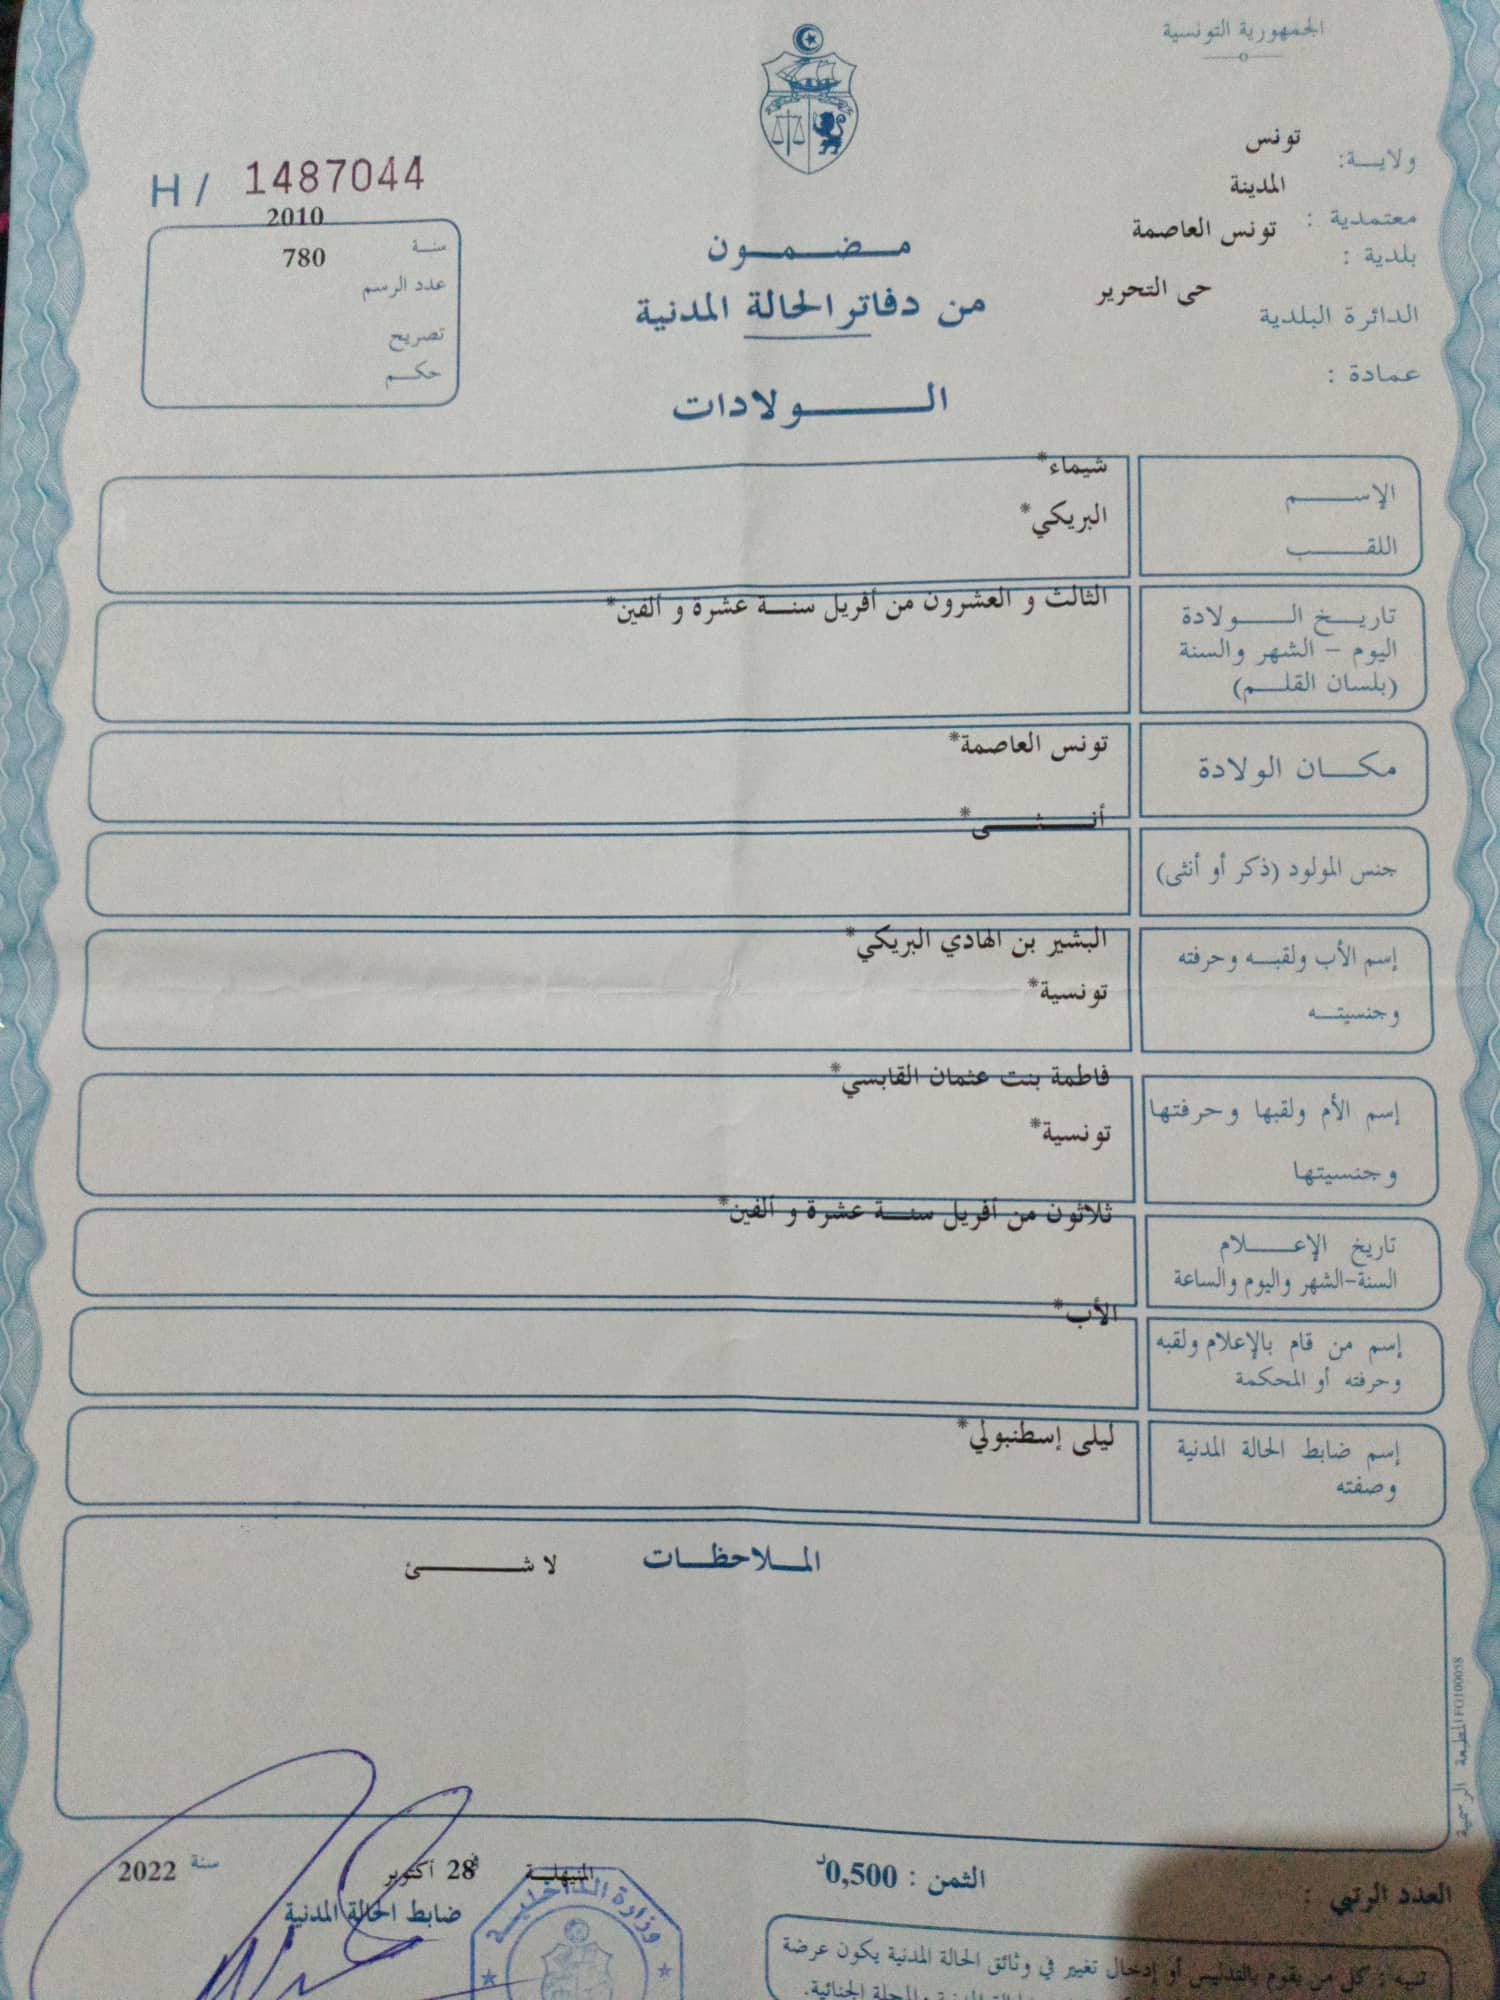 الجمهورية التونسية
ولايـة: تونس
المدينة
معتمدية :
بلدية : تونس العاصمة
الدائرة البلدية حى التحرير
عمادة :
H / 1487044
2010
سنة
780
عدد الرسم
تصريح
حكم
مضمون
من دفاتر الحالة المدنية
الولادات
الإسم شيماء*
اللقب البريكي*
تاريخ الولادة الثالث و العشرون من أفريل سنة عشرة و ألفين*
اليوم - الشهر والسنة
(بلسان القلم)
مكان الولادة تونس العاصمة*
جنس المولود (ذكر أو أنثى) أنثى*
إسم الأب ولقبه وحرفته البشير بن الهادي البريكي*
وجنسيته تونسية*
إسم الأم ولقبها وحرفتها فاطمة بنت عثمان القابسي*
وجنسيتها تونسية*
تاريخ الإعلام ثلاثون من أفريل سنة عشرة و ألفين*
السنة-الشهر واليوم والساعة
إسم من قام بالإعلام ولقبه الأب*
وحرفته أو المحكمة
إسم ضابط الحالة المدنية ليلى إسطنبولي*
وصفته
الملاحظات لا شئ
المطبعة الرسمية FO100058
العدد الرتبي :
الثمن : 0,500د
المنيهلة في 28 أكتوبر سنة 2022
ضابط الحالة المدنية
وزارة الداخلية
تنبيه : كل من يقوم بالتدليس أو إدخال تغيير في وثائق الحالة المدنية يكون عرضة
المدنية والمجلة الجنائية.